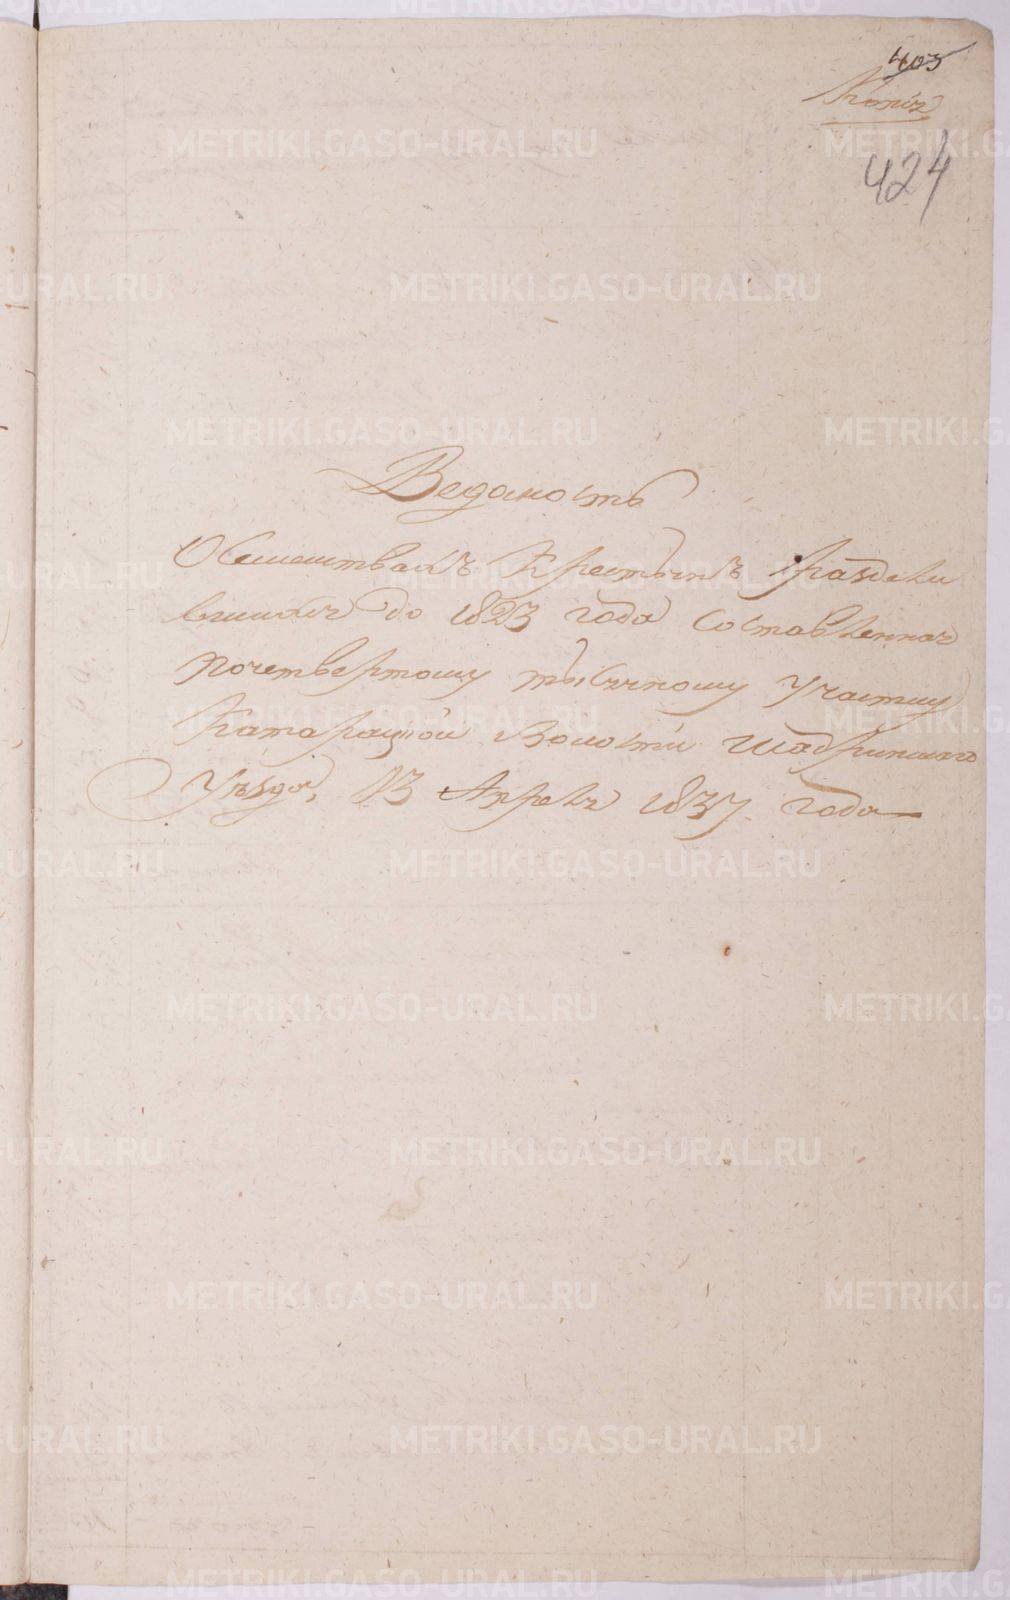 403
Копія
424
Ведомость
О Семействахъ Крестьянъ раздели
вшихся до 1823 года Составленная
почетвертому тысячному Участку
Катарацкой Волости Шадринскаго
Уѣзда, 13 Апреля 1837. года
METRIKI.GASO-URAL.RU